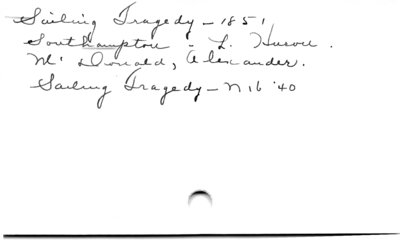 Sailing Tragedy - 1851
Southampton - L. Huron.
Mc Donald, Alexander.
Sailing Tragedy - N 16 '40